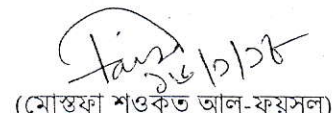 ১৬/১/১৮
(মোস্তফা শওকত আল-ফয়সল)